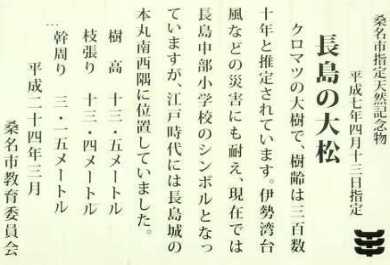 桑名市指定天然記念物
平成七年四月十三日指定
長島の大松
クロマツの大樹で、樹齢は三百数
十年と推定されています。伊勢湾台
風などの災害にも耐え、現在では
長島中部小学校のシンボルとなっ
ていますが、江戸時代には長島城の
本丸南西隅に位置していました。
樹高 十三・五メートル
枝張り 十三・四メートル
幹周り 三・二五メートル
平成二十四年三月
桑名市教育委員会